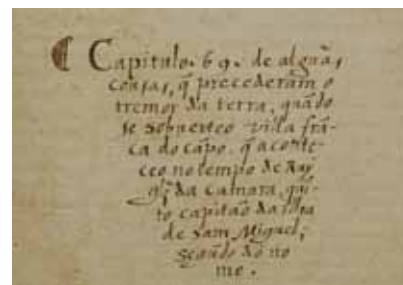 ¶ Capitulo. 69. de algũas,
cousas, q̃ precederam o
tremor da terra, quãdo
se soverteo villa frã-
ca do cãpo. q̃ aconte-
ceo no tempo de Ruy
glz̃ da camara, qui-
to capitaõ da Ilha
de Sam Miguel;
segũdo do no
me.